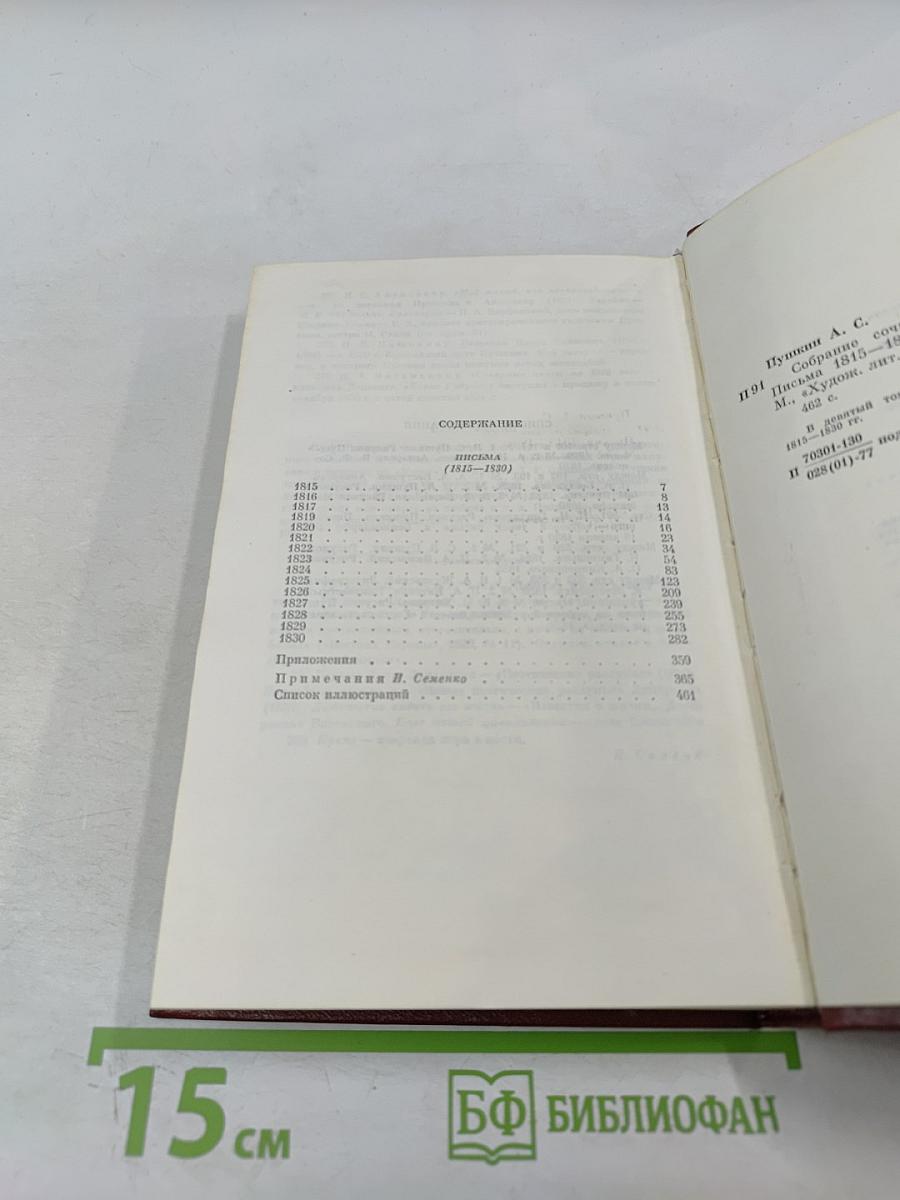 СОДЕРЖАНИЕ
ПИСЬМА
(1815—1830)
1815 . . . . . . . . . . . . . . . . . 7
1816 . . . . . . . . . . . . . . . . . 8
1817 . . . . . . . . . . . . . . . . . 13
1819 . . . . . . . . . . . . . . . . . 14
1820 . . . . . . . . . . . . . . . . . 16
1821 . . . . . . . . . . . . . . . . . 23
1822 . . . . . . . . . . . . . . . . . 34
1823 . . . . . . . . . . . . . . . . . 54
1824 . . . . . . . . . . . . . . . . . 83
1825 . . . . . . . . . . . . . . . . . 123
1826 . . . . . . . . . . . . . . . . . 209
1827 . . . . . . . . . . . . . . . . . 239
1828 . . . . . . . . . . . . . . . . . 255
1829 . . . . . . . . . . . . . . . . . 273
1830 . . . . . . . . . . . . . . . . . 282
Приложения . . . . . . . . . . . . . . . 359
Примечания И. Семенко . . 365
Список иллюстраций . . . . . . . . . . . . 461
Пушкин А. С.
Собрание соч
П91 Письма 1815—18
М., «Худож. лит.
462 с.
В девятый том
1815—1830 гг.
П 70301-130 под
028(01)-77
15 см
БФ БИБЛИОФАН